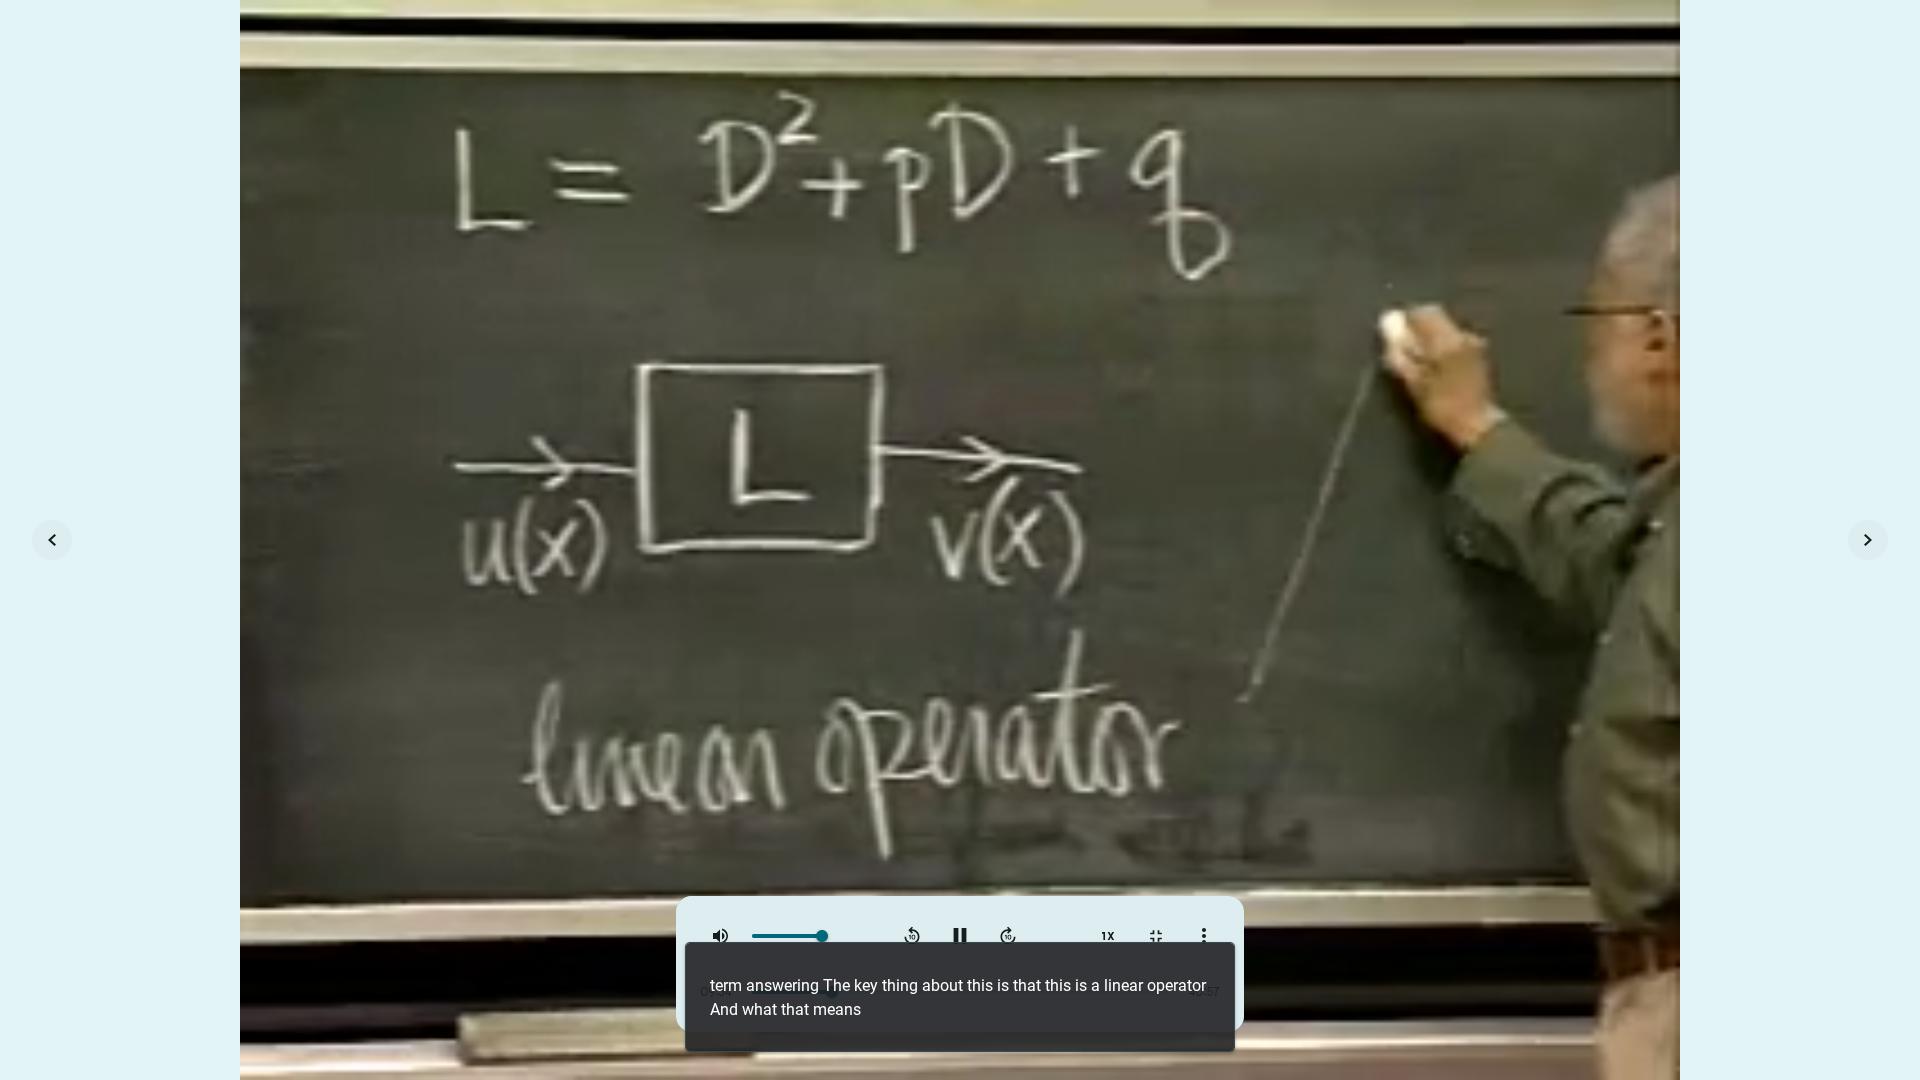 L = D² + pD + q
L
u(x) v(x)
linear operator
1X
term answering The key thing about this is that this is a linear operator
And what that means